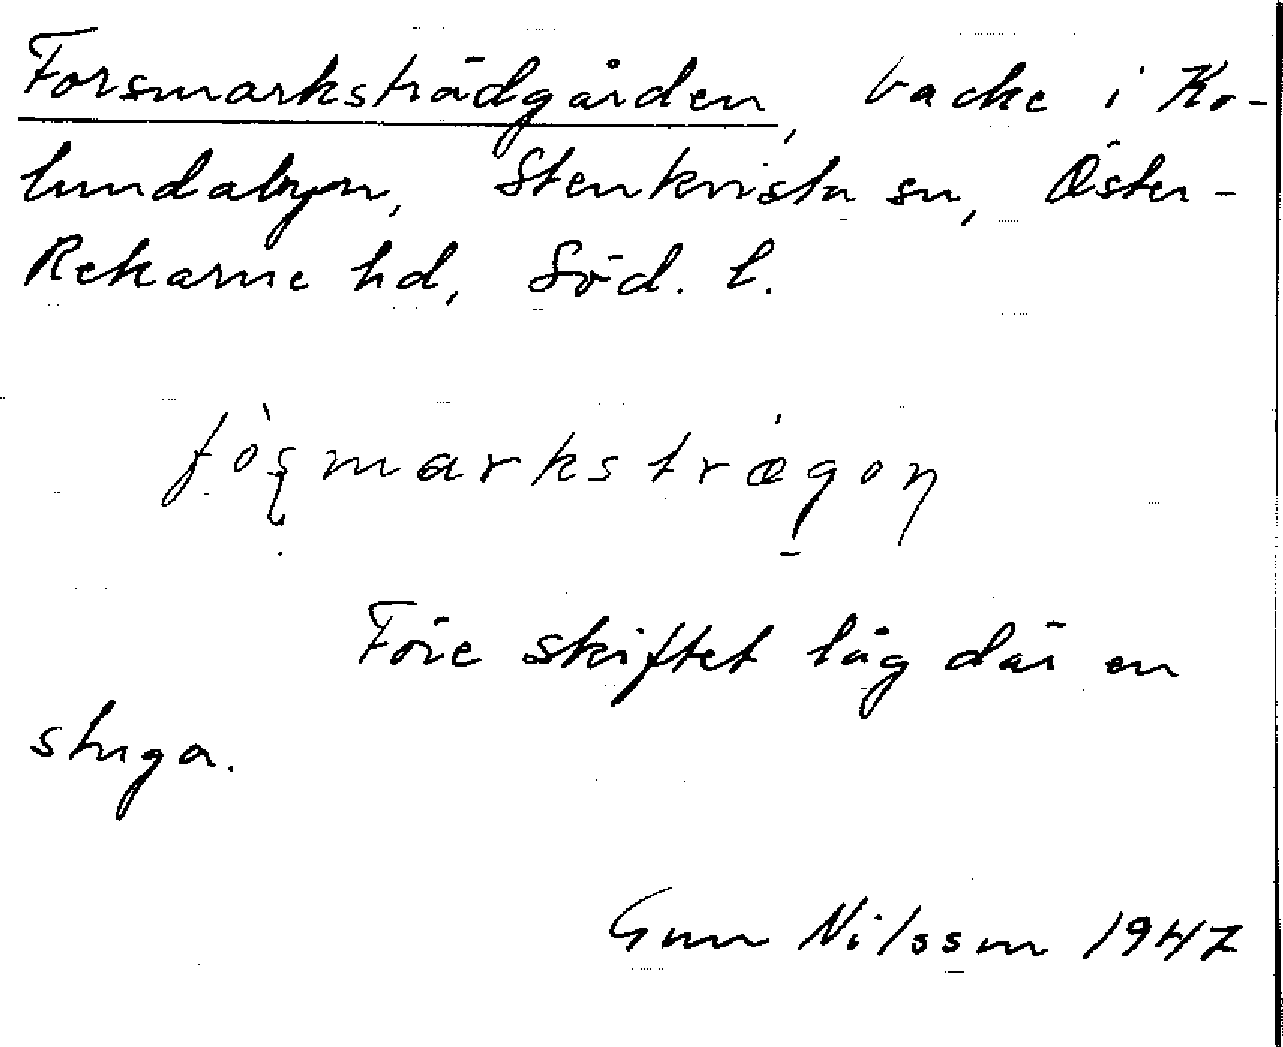 Forsmarksträdgården, backe i Ko-
lundabyn, Stenkvista sn, Öster-
Rekarne hd, Söd. l.
Före skiftet låg där en
stuga.
Gun Nilsson 1947